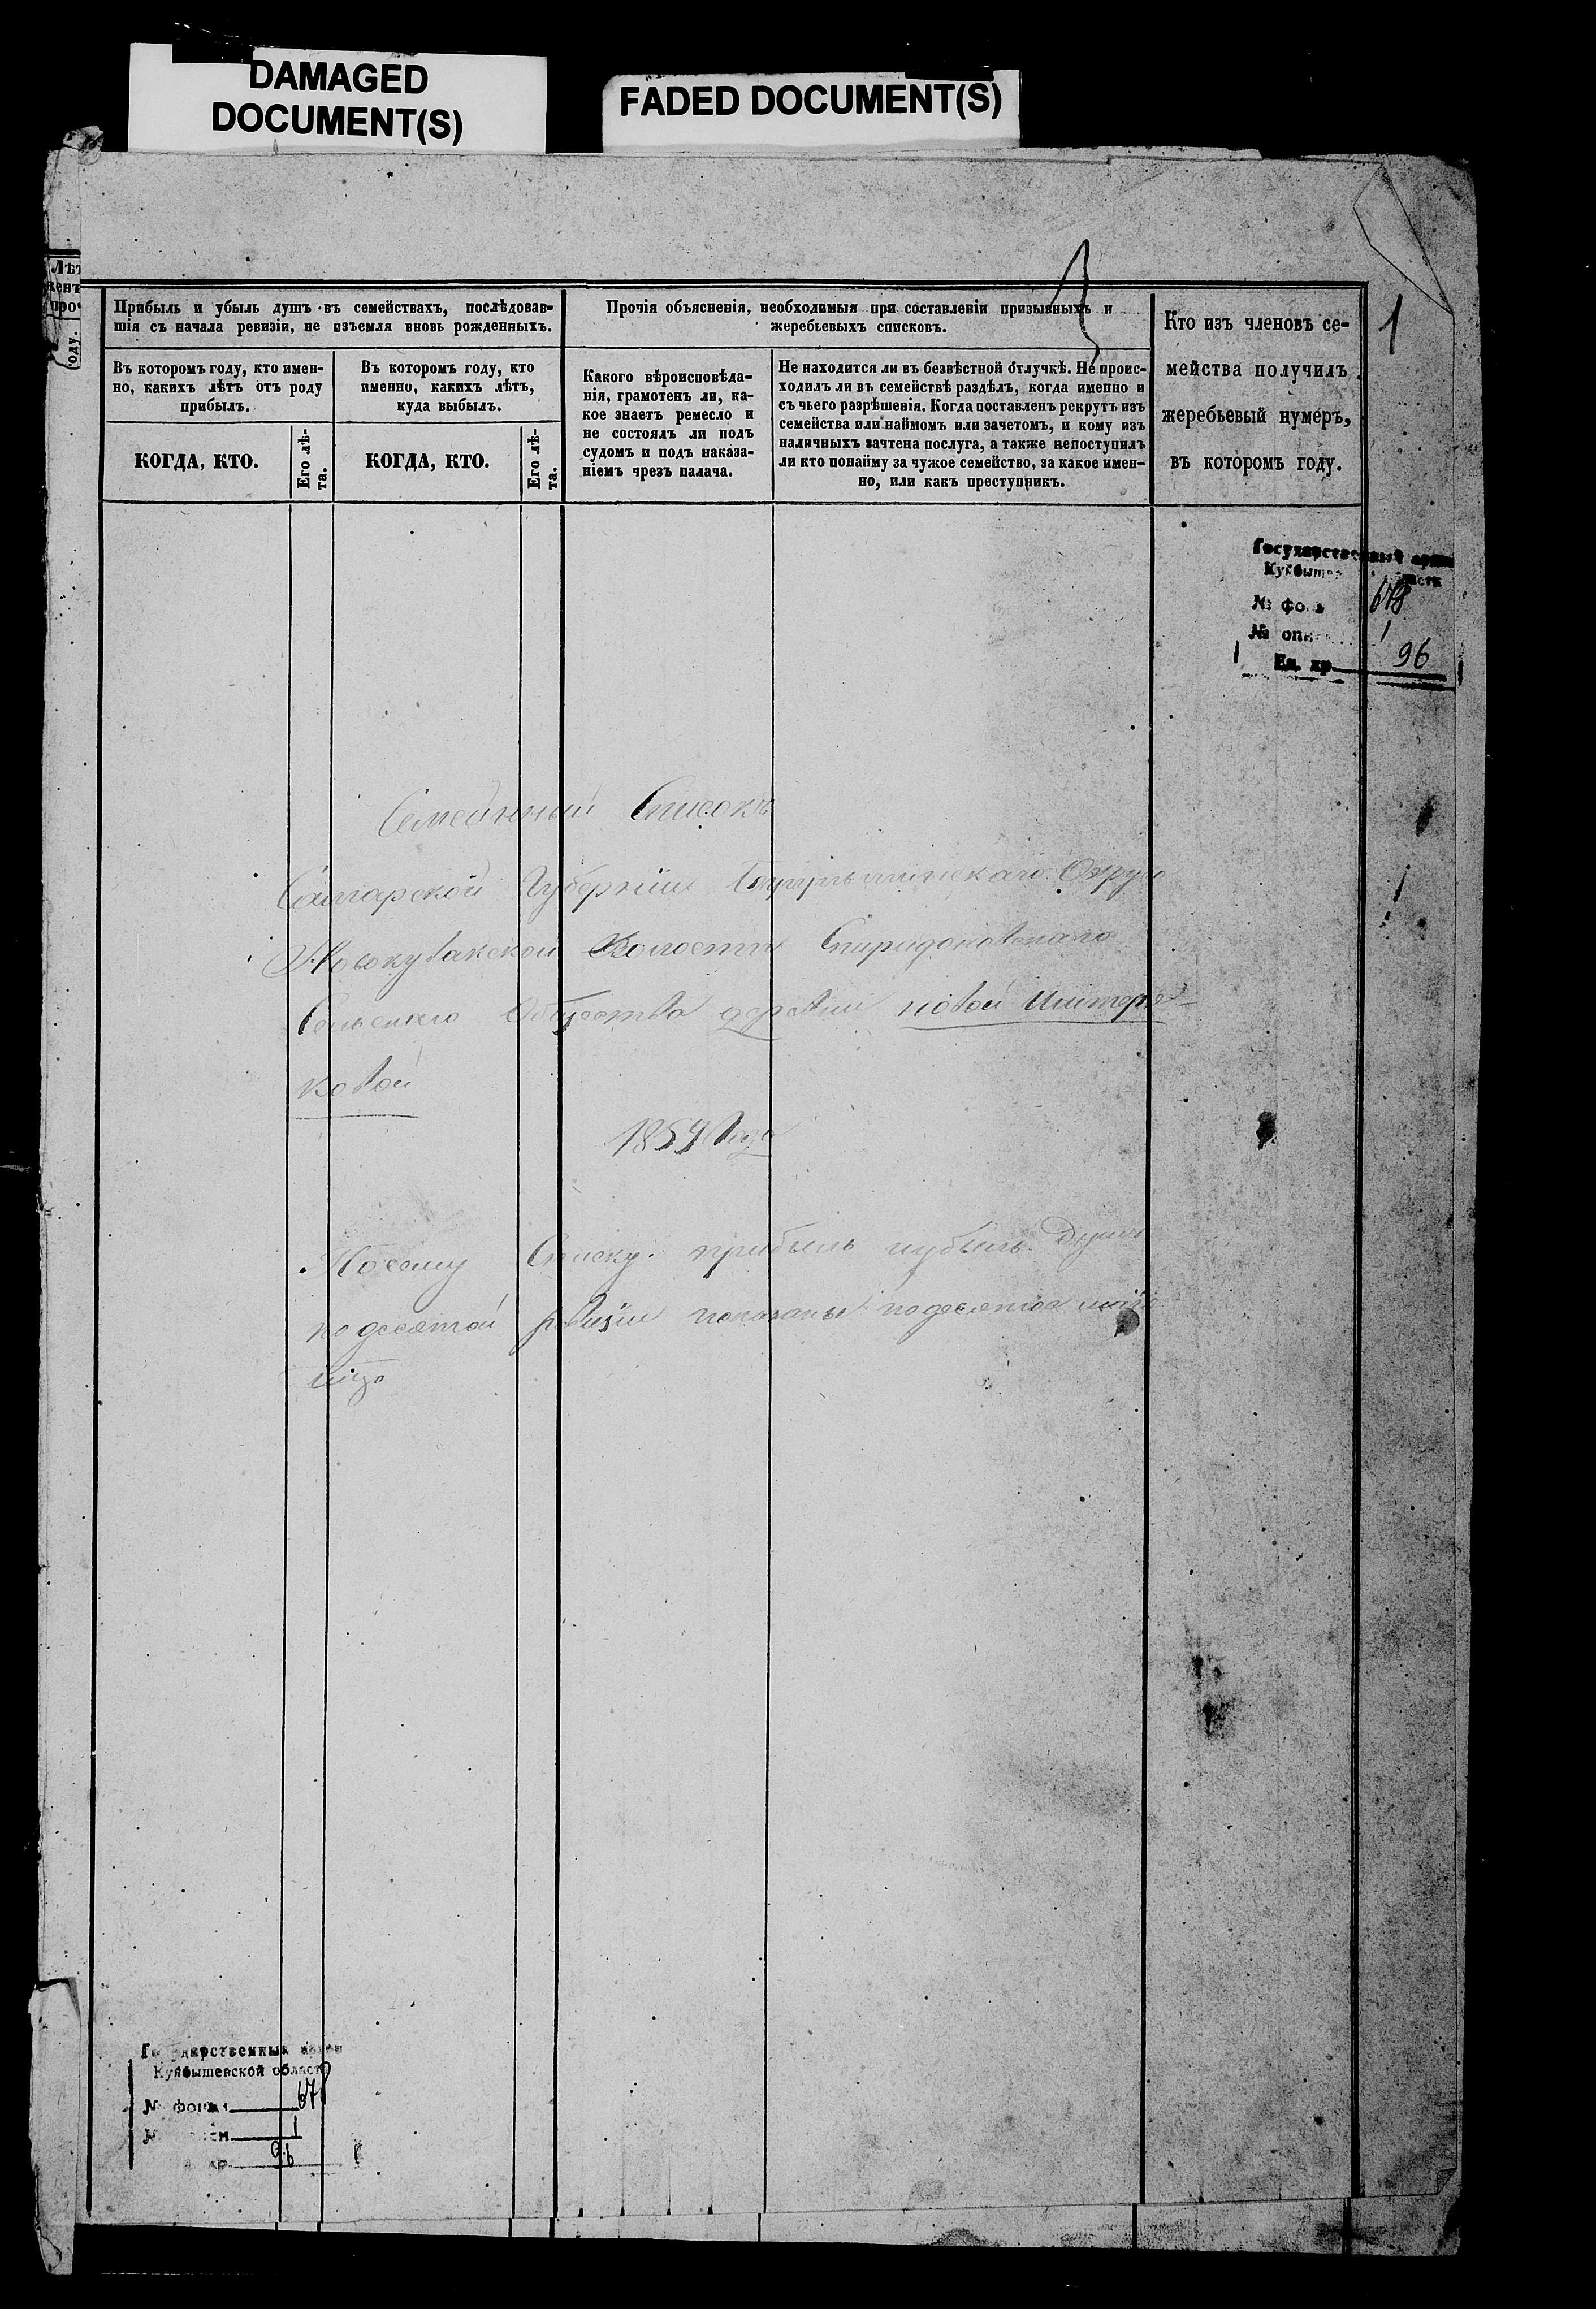 DAMAGED
DOCUMENT(S)
FADED DOCUMENT(S)
Прибыль и убыль душъ въ семействахъ, послѣдовав-
шія съ начала ревизіи, не изъемля вновь рожденныхъ.
Прочія объясненія, необходимыя при составленіи призывныхъ и
жеребьевыхъ списковъ.
Кто изъ членовъ се-
мейства получилъ
жеребьевый нумеръ,
въ которомъ году.
1
Въ которомъ году, кто имен-
но, какихъ лѣтъ отъ роду
прибылъ.
Въ которомъ году, кто
именно, какихъ лѣтъ,
куда выбылъ.
Какого вѣроисповѣда-
нія, грамотенъ ли, ка-
кое знаетъ ремесло и
не состоялъ ли подъ
судомъ и подъ наказа-
ніемъ чрезъ палача.
Не находится ли въ безвѣстной отлучкѣ. Не проис-
ходилъ ли въ семействѣ раздѣлъ, когда именно и
съ чьего разрѣшенія. Когда поставленъ рекрутъ изъ
семейства или наймомъ или зачетомъ, и кому изъ
наличныхъ зачтена послуга, а также непоступилъ
ли кто понайму за чужое семейство, за какое имен-
но, или какъ преступникъ.
КОГДА, КТО.
Его лѣ-
та.
КОГДА, КТО.
Его лѣ-
та.
Государственный
678
1
Ед. хр. 96
Семейнный Списокъ
Самарской Губерніи Бугульминскаго Округа
Новокувакской Волости Спиридоновскаго
Сельскаго Общества деревни новой
ковой
185 Года
Посему Списку прибыль иубыль Душъ
подесятой ревизіи показаны подесятое
Государственный
Куйбышевской области
№ фонда 678
1
96